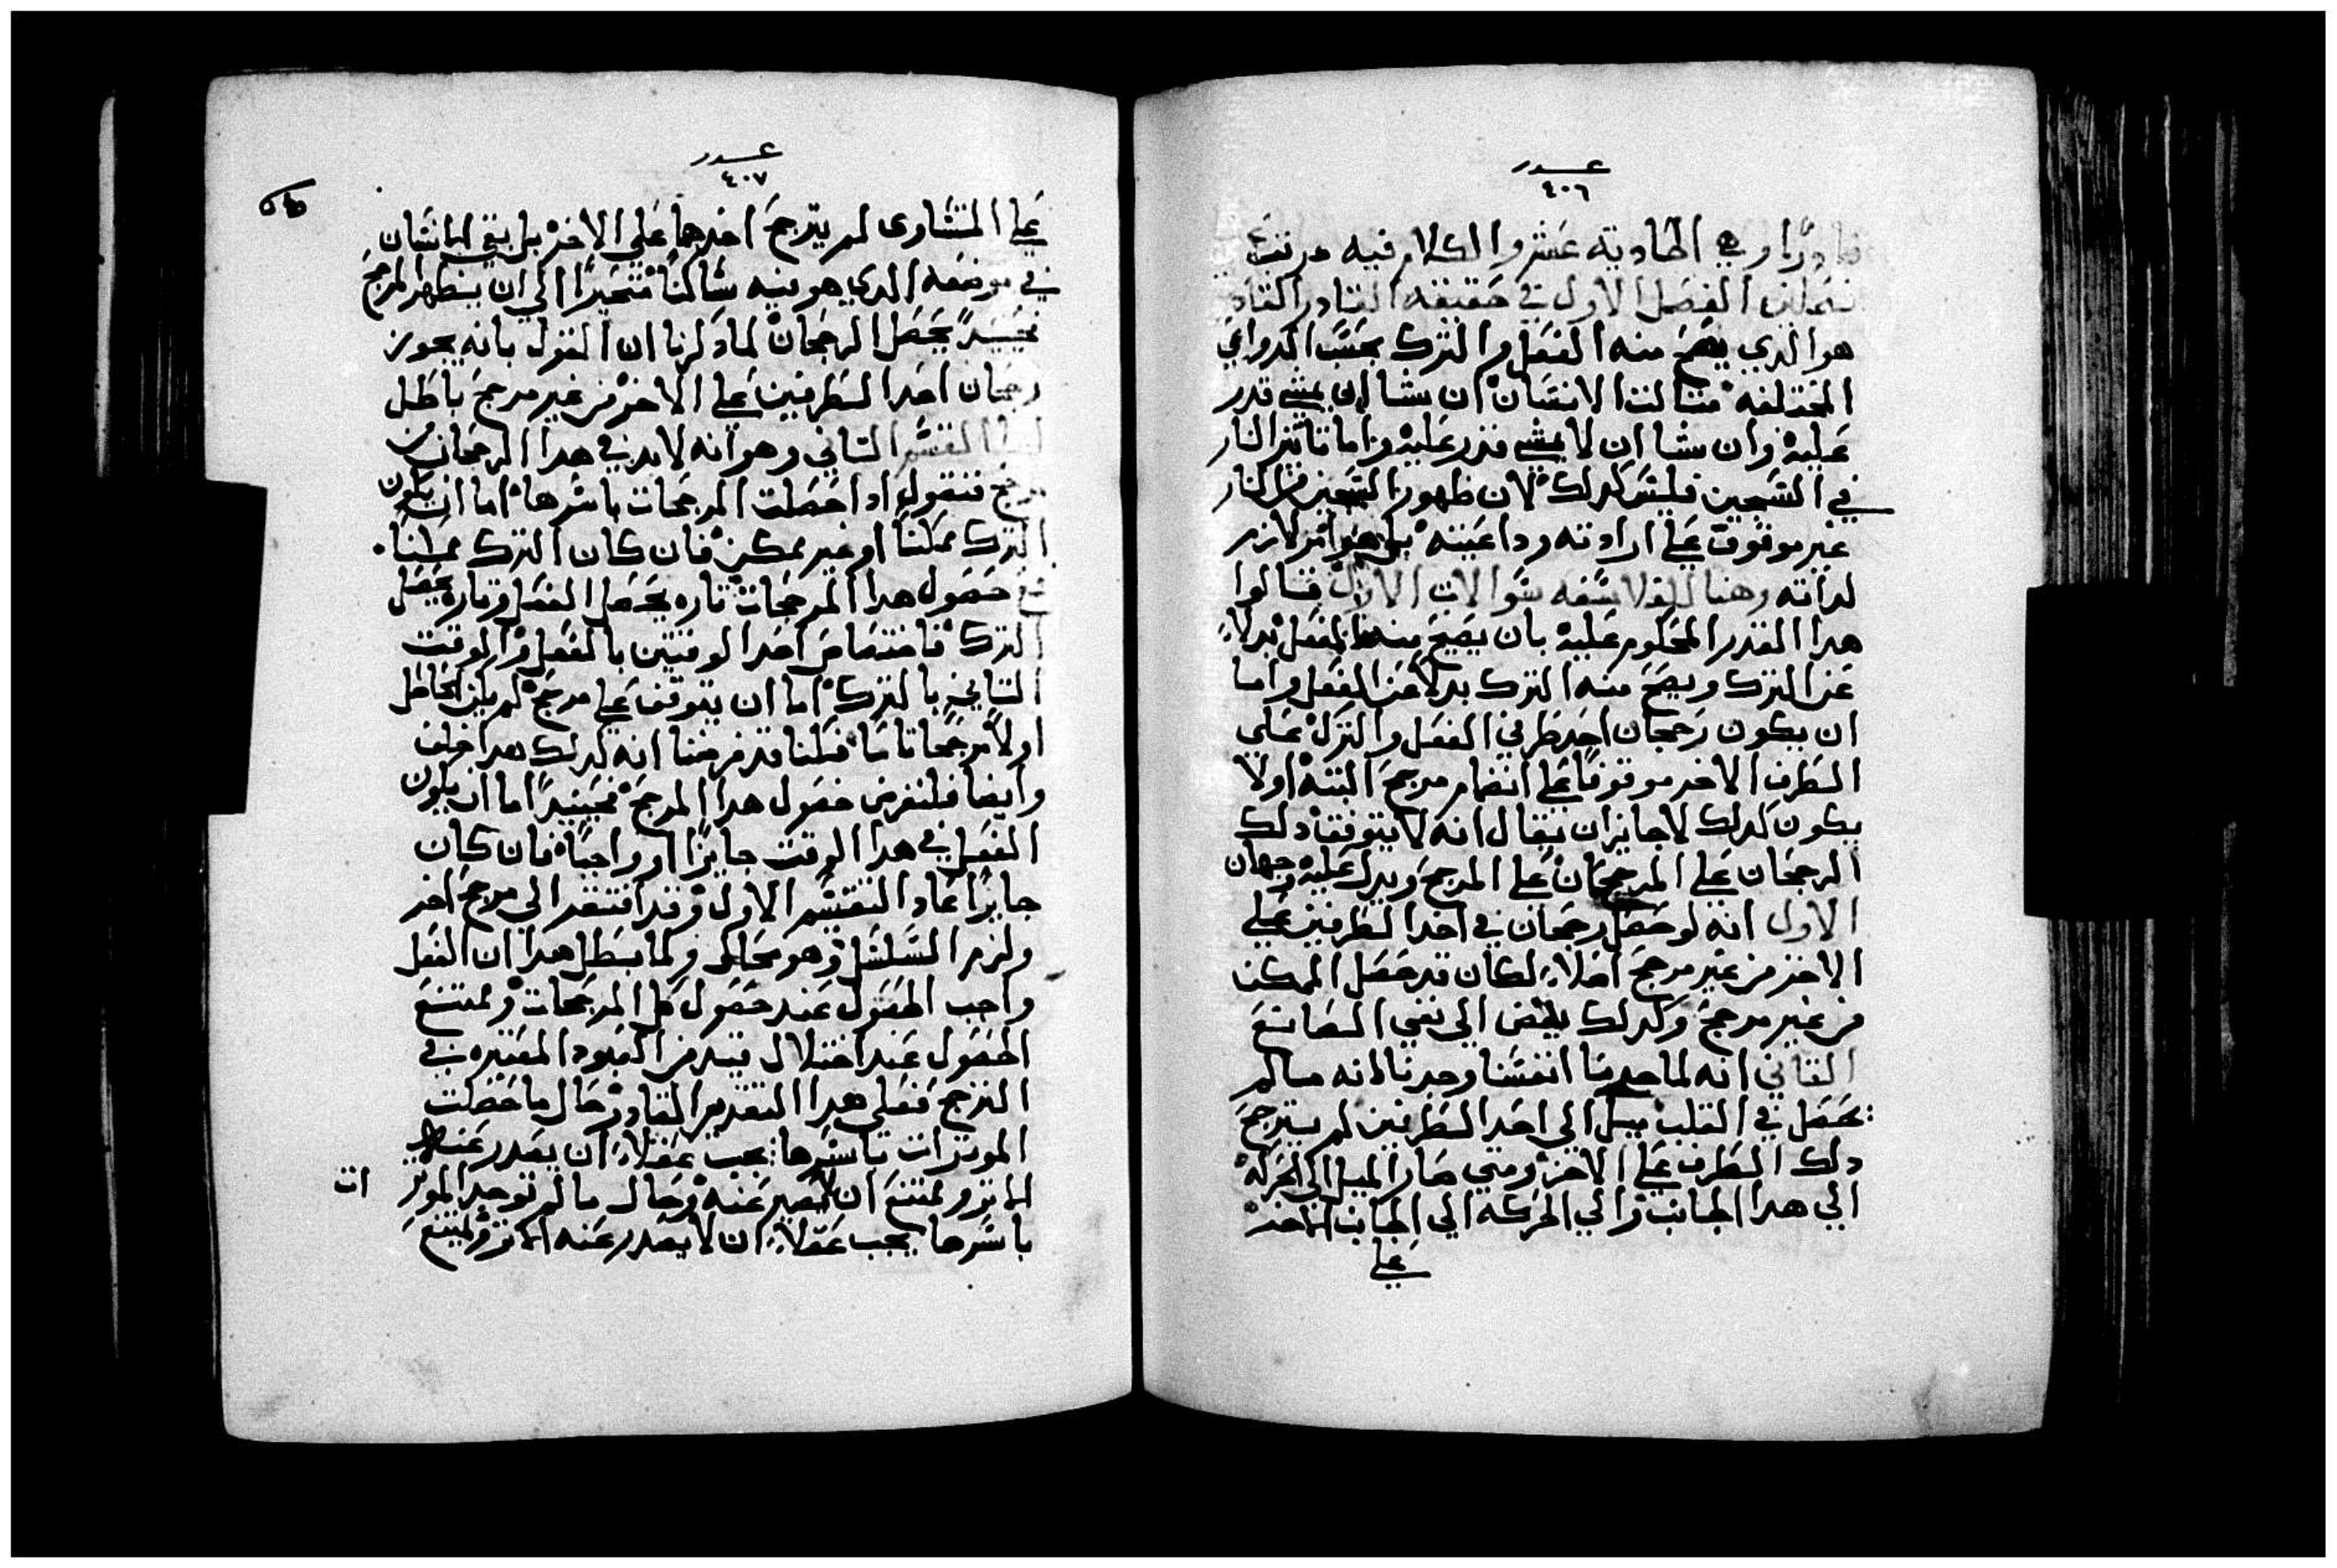 عدد
٤٠٦
قادرًا وهي الحادية عشر والكلام فيه مرتب
الفصل الاول في حقيقه القادر القادر
هو الدي يصح منه الفعل والترك بحسب الدواعي
المختلفه مثالت الانسان ان شا ان يمشي قدر
عليه وان شا ان لا يمشي قدر عليه واما تاثير النار
في التسخين فليس كدلك لان ظهور التسخين من النار
غير موقوف علي ارادته وداعيته بل هو امر لازم
لداته وهنا للفلاسفه سوالات الاول قالوا
هدا القدر المحكوم عليه بان يصح منه الفعل بدلاً
عن الترك ويصح منه الترك بدلا عن الفعل واما
ان يكون رجحان احد طرفي الفعل والترك علي
الطرف الاخر موقوفًا علي انضمام مرجح البته اولا
يكون كدلك لا جايز ان يقال انه لا يتوقف دلك
الرجحان علي المرجحان علي المرجح ويدل عليه وجهان
الاول انه لو حصل رجحان في احد الطرفين علي
الاخر من غير مرجح اصلاً لكان قد حصل الممكن
من غير مرجح وكدلك يفضي الي نفي الصانع
الثاني انه لما جربنا انفسنا وجدنا انه ما لم
يحصل في القلب ميل الي احد الطرفين لم يترجح
دلك الطرف علي الاخر ومتي صار الميل الي الحركه
الي هدا الجانب والي الحركه الي الجانب الاخر
علي
عدد
٤٠٧
علي التساوي لم يترجح احدهما علي الاخر بل بقي الانسان
في موضعه الدي هو فيه ساكنًا متحيرًا الي ان يظهر المرجح
فحينيدً يحصل الرجحان لما دكرنا ان القول بانه يجوز
رجحان احد الطرفين علي الاخر من غير مرجح باطل
اما القسم الثاني وهو انه لابد في هدا الرجحان من
مرجح فنقول ادا حصلت المرجحات باسرها اما ان يكون
الترك ممكنًا او غير ممكن فان كان الترك ممكنًا
مع حصول هدا المرجحات تاره يحصل الفعل وتاره يحصل
الترك فاختصاص احد الوقتين بالفعل والوقت
الثاني بالترك اما ان يتوقف علي مرجح لم يكن الحاصل
اولاً مرجحًا تامًا فكنا قد فرضنا انه كدلك هدا خلف
وايضا فلنفرض حصول هدا المرجح فحينيدً اما ان يكون
الفعل في هدا الوقت جايزًا او واجبًا فان كان
جايزًا عاد التقسيم الاول وقد افتقد الي مرجح اخر
ولزم التسلسل وهو محال ولما بطل هدا ان الفعل
واجب الحصول عند حصول كل المرجحات وممتنع
الحصول عند اختلال قيد من القيود المعتبره في
الترجح فعلي هدا التقدير القادر حال ما حصلت
الموثرات باسرها يجب عقلاً ان يصدر عنه
الاثر وممتنع ان لا يصير عنه وحال ما لم توجد الموثر
ات
باسرها يجب عقلاً ان لا يصدر عنه الاثر وممتنع